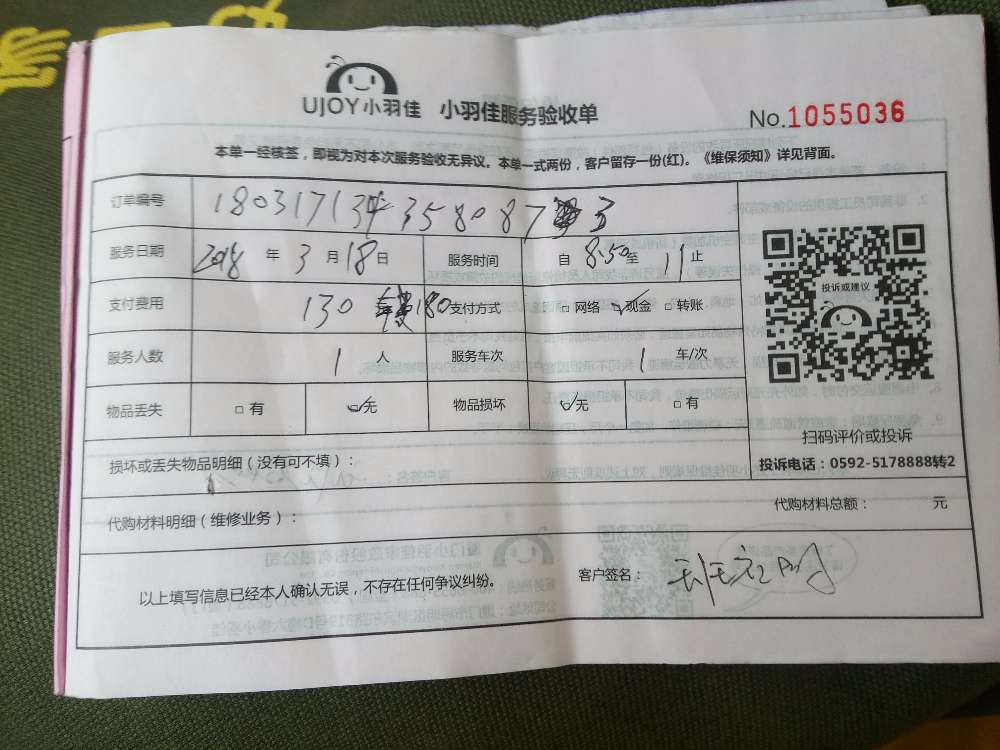 UJOY小羽佳 小羽佳服务验收单
No.1055036
本单一经核签，即视为对本次服务验收无异议。本单一式两份，客户留存一份(红)。《维保须知》详见背面。
订单编号
服务日期 2018 年 3 月 18 日 服务时间 自 8:50 至 11 止
支付费用 130 180 支付方式 □ 网络 ☑ 现金 □ 转账
服务人数 1 人 服务车次 1 车/次
物品丢失 □ 有 ☑ 无 物品损坏 ☑ 无 □ 有
投诉或建议
扫码评价或投诉
投诉电话：0592-5178888转2
损坏或丢失物品明细（没有可不填）：
代购材料明细（维修业务）： 代购材料总额： 元
以上填写信息已经本人确认无误，不存在任何争议纠纷。 客户签名：